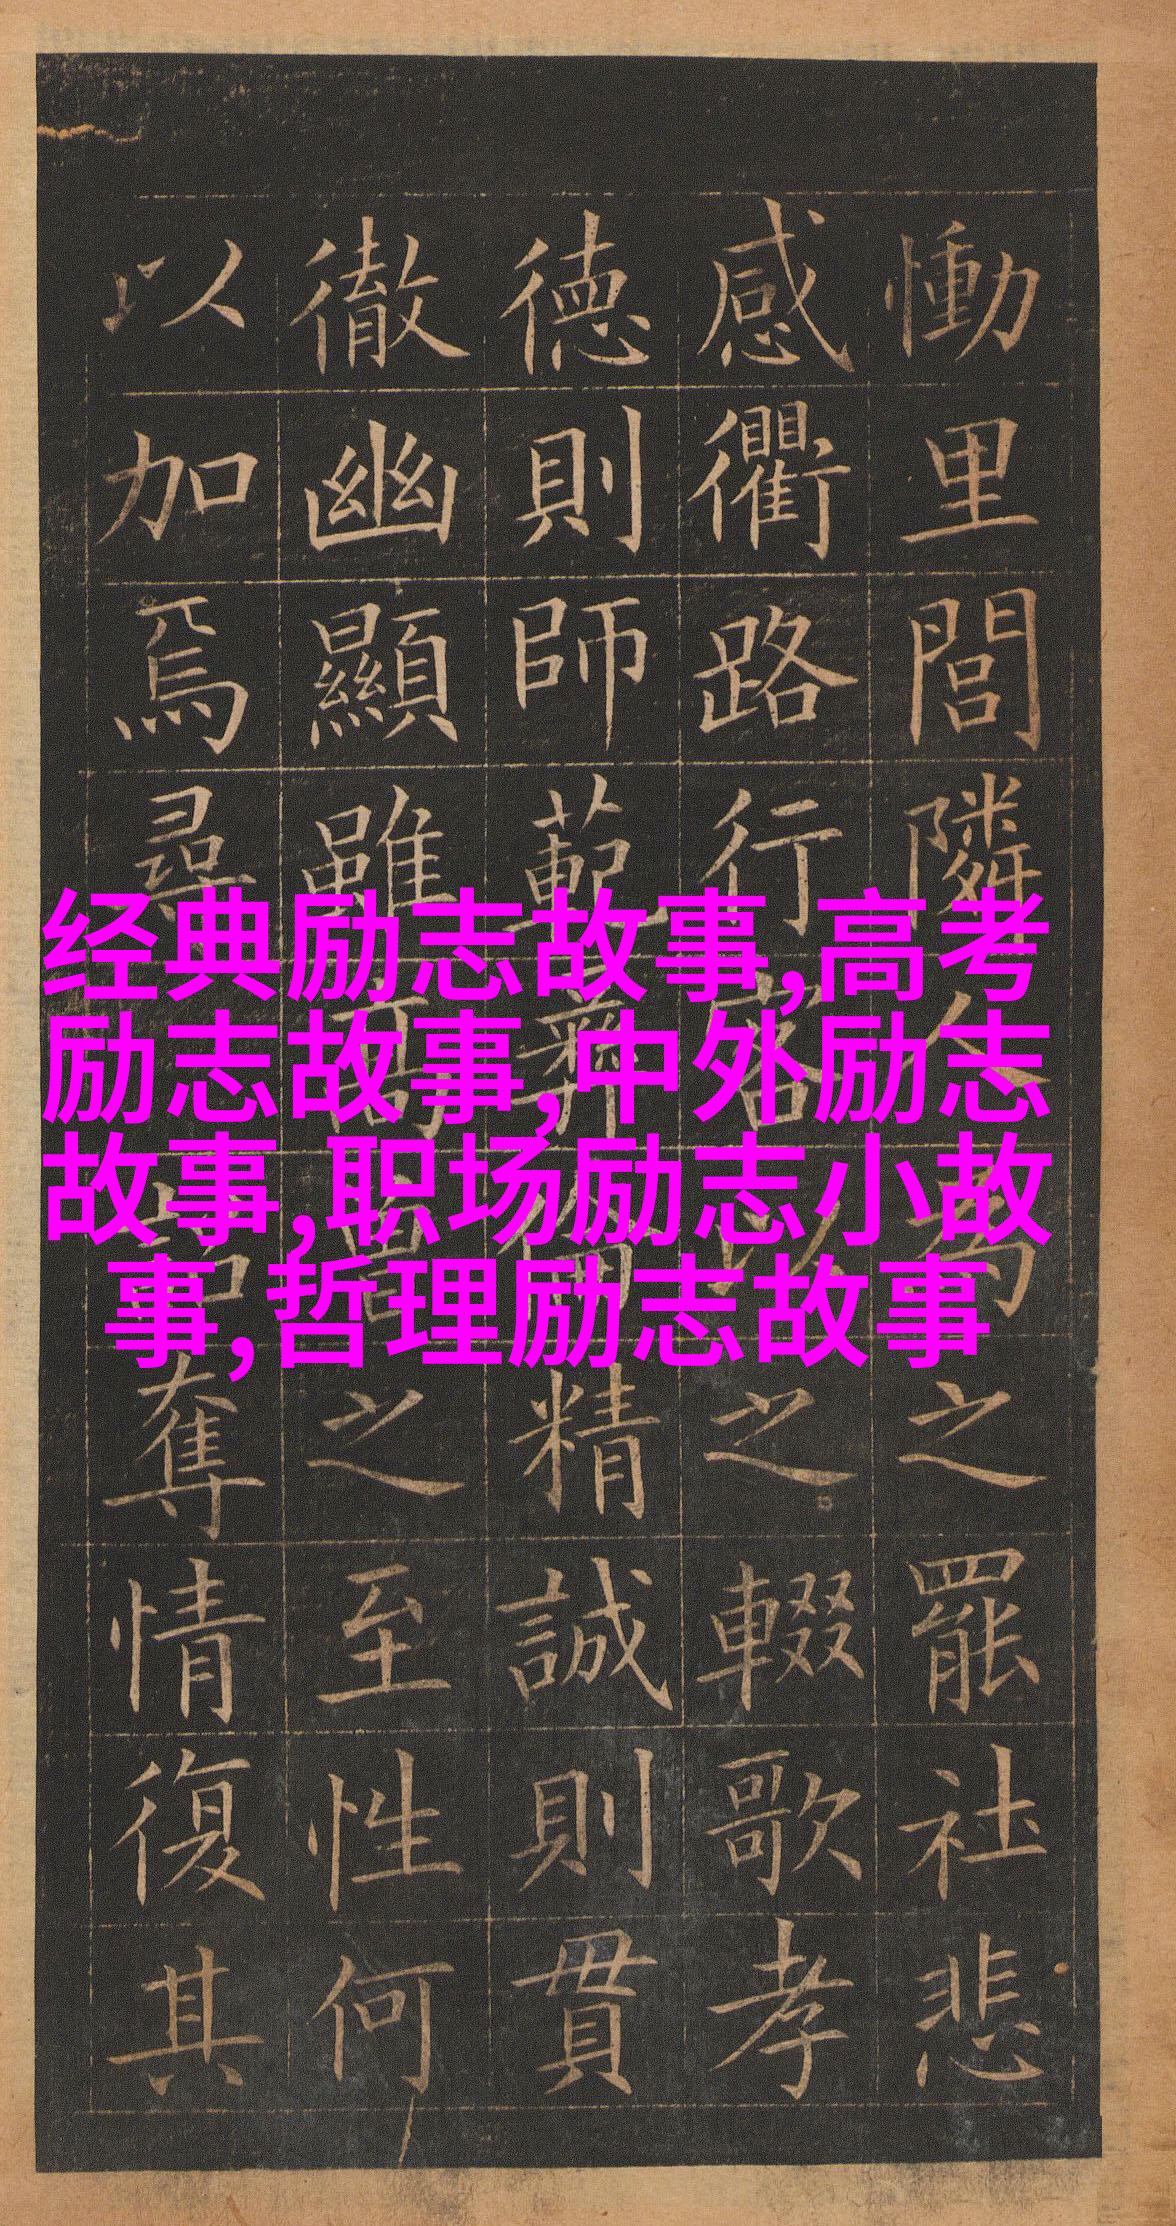 经典励志故事,高考
励志故事,中外励志
故事,职场励志小故
事,哲理励志故事
慟里閭隣人為之罷社悲
感衢路行客以之輟歌孝
德則師範彝倫精誠則貫
徹幽顯雖高曾之至性何
以加焉尋詔奪情復其